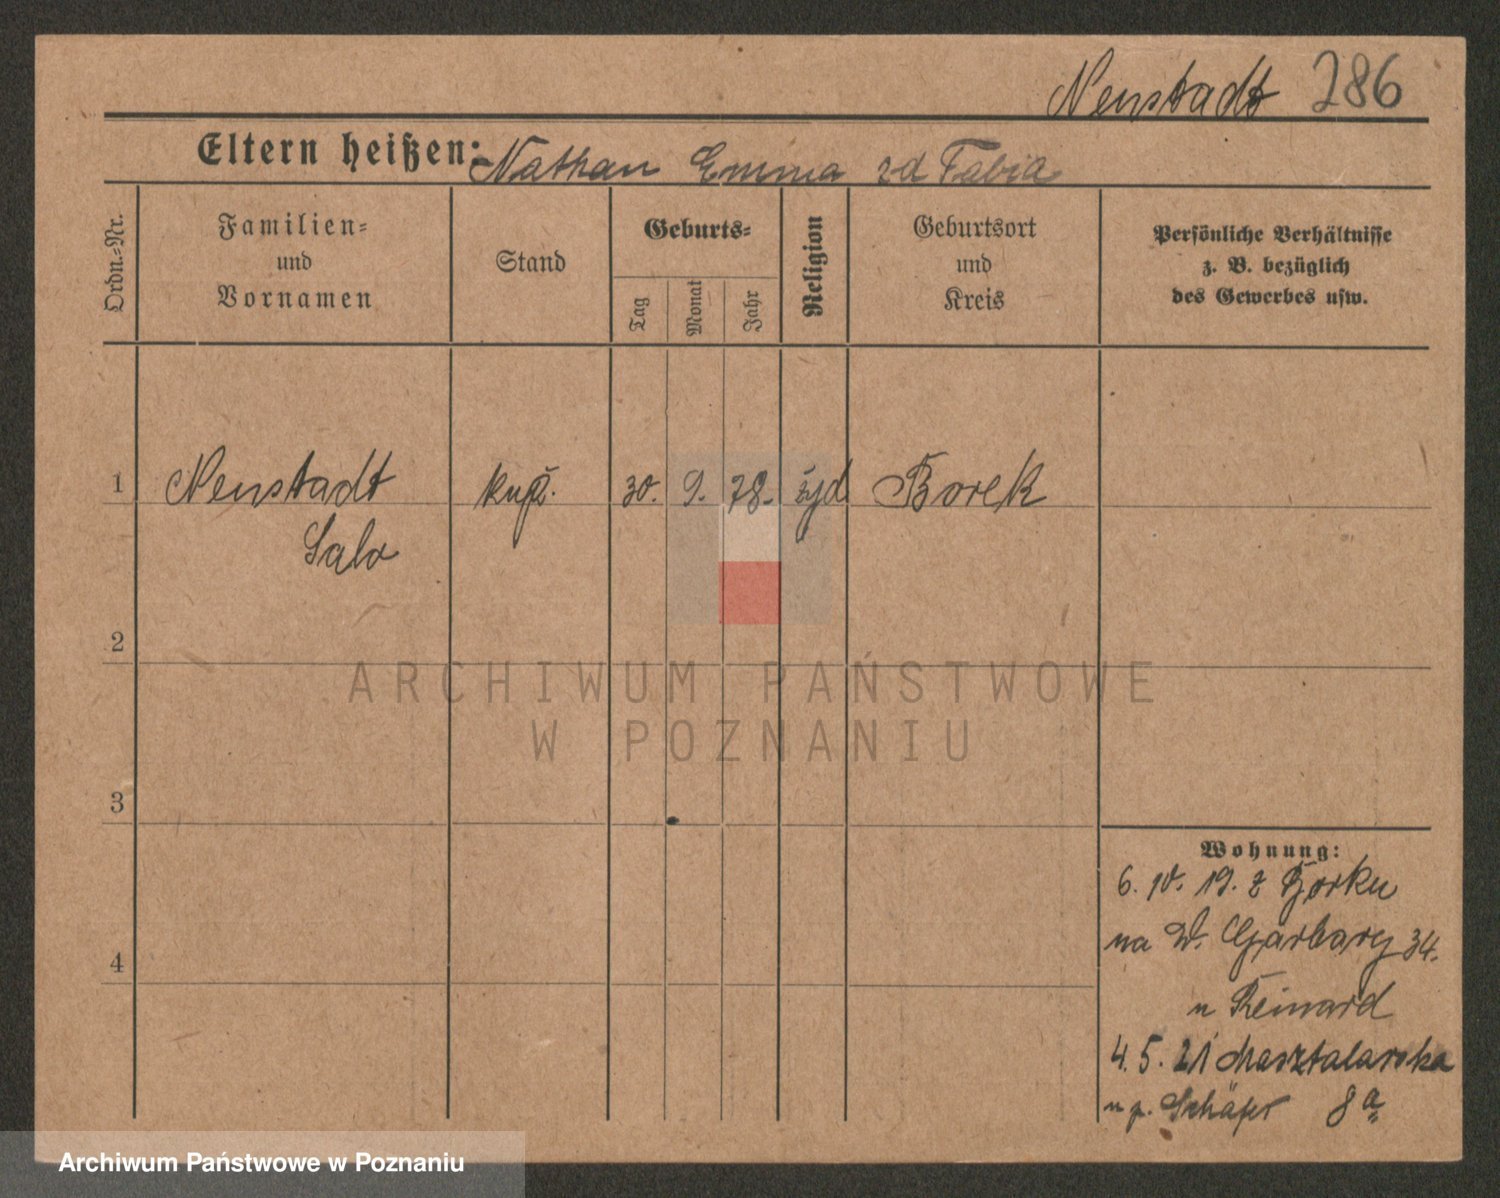 Neustadt 286
Eltern heißen: Nathan Emma zd Fabia
Ordn.-Nr.
Familien-
und
Vornamen
Stand
Geburts-
Tag
Monat
Jahr
Religion
Geburtsort
und
Kreis
Persönliche Verhältnisse
z. B. bezüglich
des Gewerbes usw.
1 Neustadt kup. 30. 9. 78. żyd Borek
Salo
2
ARCHIWUM PAŃSTWOWE
W POZNANIU
3
Wohnung:
6. 10. 19. z Borku
na W. Garbary 34.
4
u Reinard
4. 5. 21 Masztalarska
u p. Schäfer 8a
Archiwum Państwowe w Poznaniu